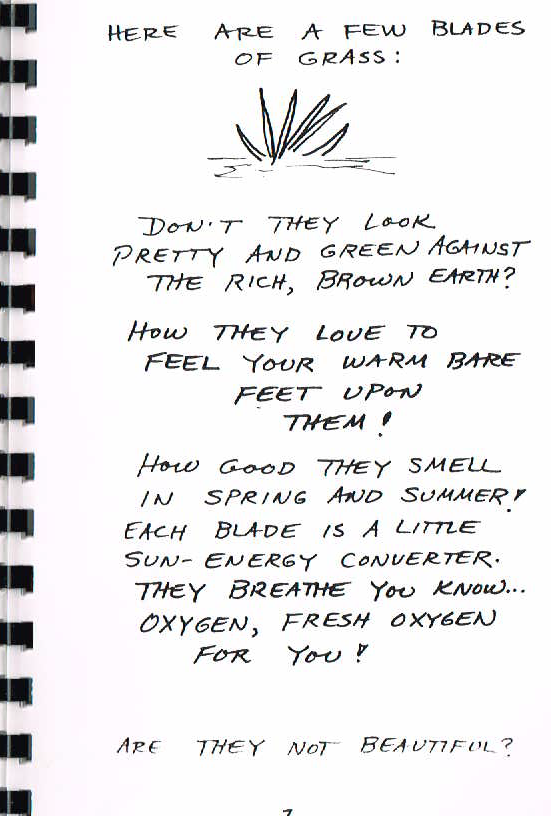 HERE ARE A FEW BLADES
OF GRASS:
DON'T THEY LOOK
PRETTY AND GREEN AGAINST
THE RICH, BROWN EARTH?
HOW THEY LOVE TO
FEEL YOUR WARM BARE
FEET UPON
THEM!
HOW GOOD THEY SMELL
IN SPRING AND SUMMER!
EACH BLADE IS A LITTLE
SUN-ENERGY CONVERTER.
THEY BREATHE YOU KNOW...
OXYGEN, FRESH OXYGEN
FOR YOU!
ARE THEY NOT BEAUTIFUL?